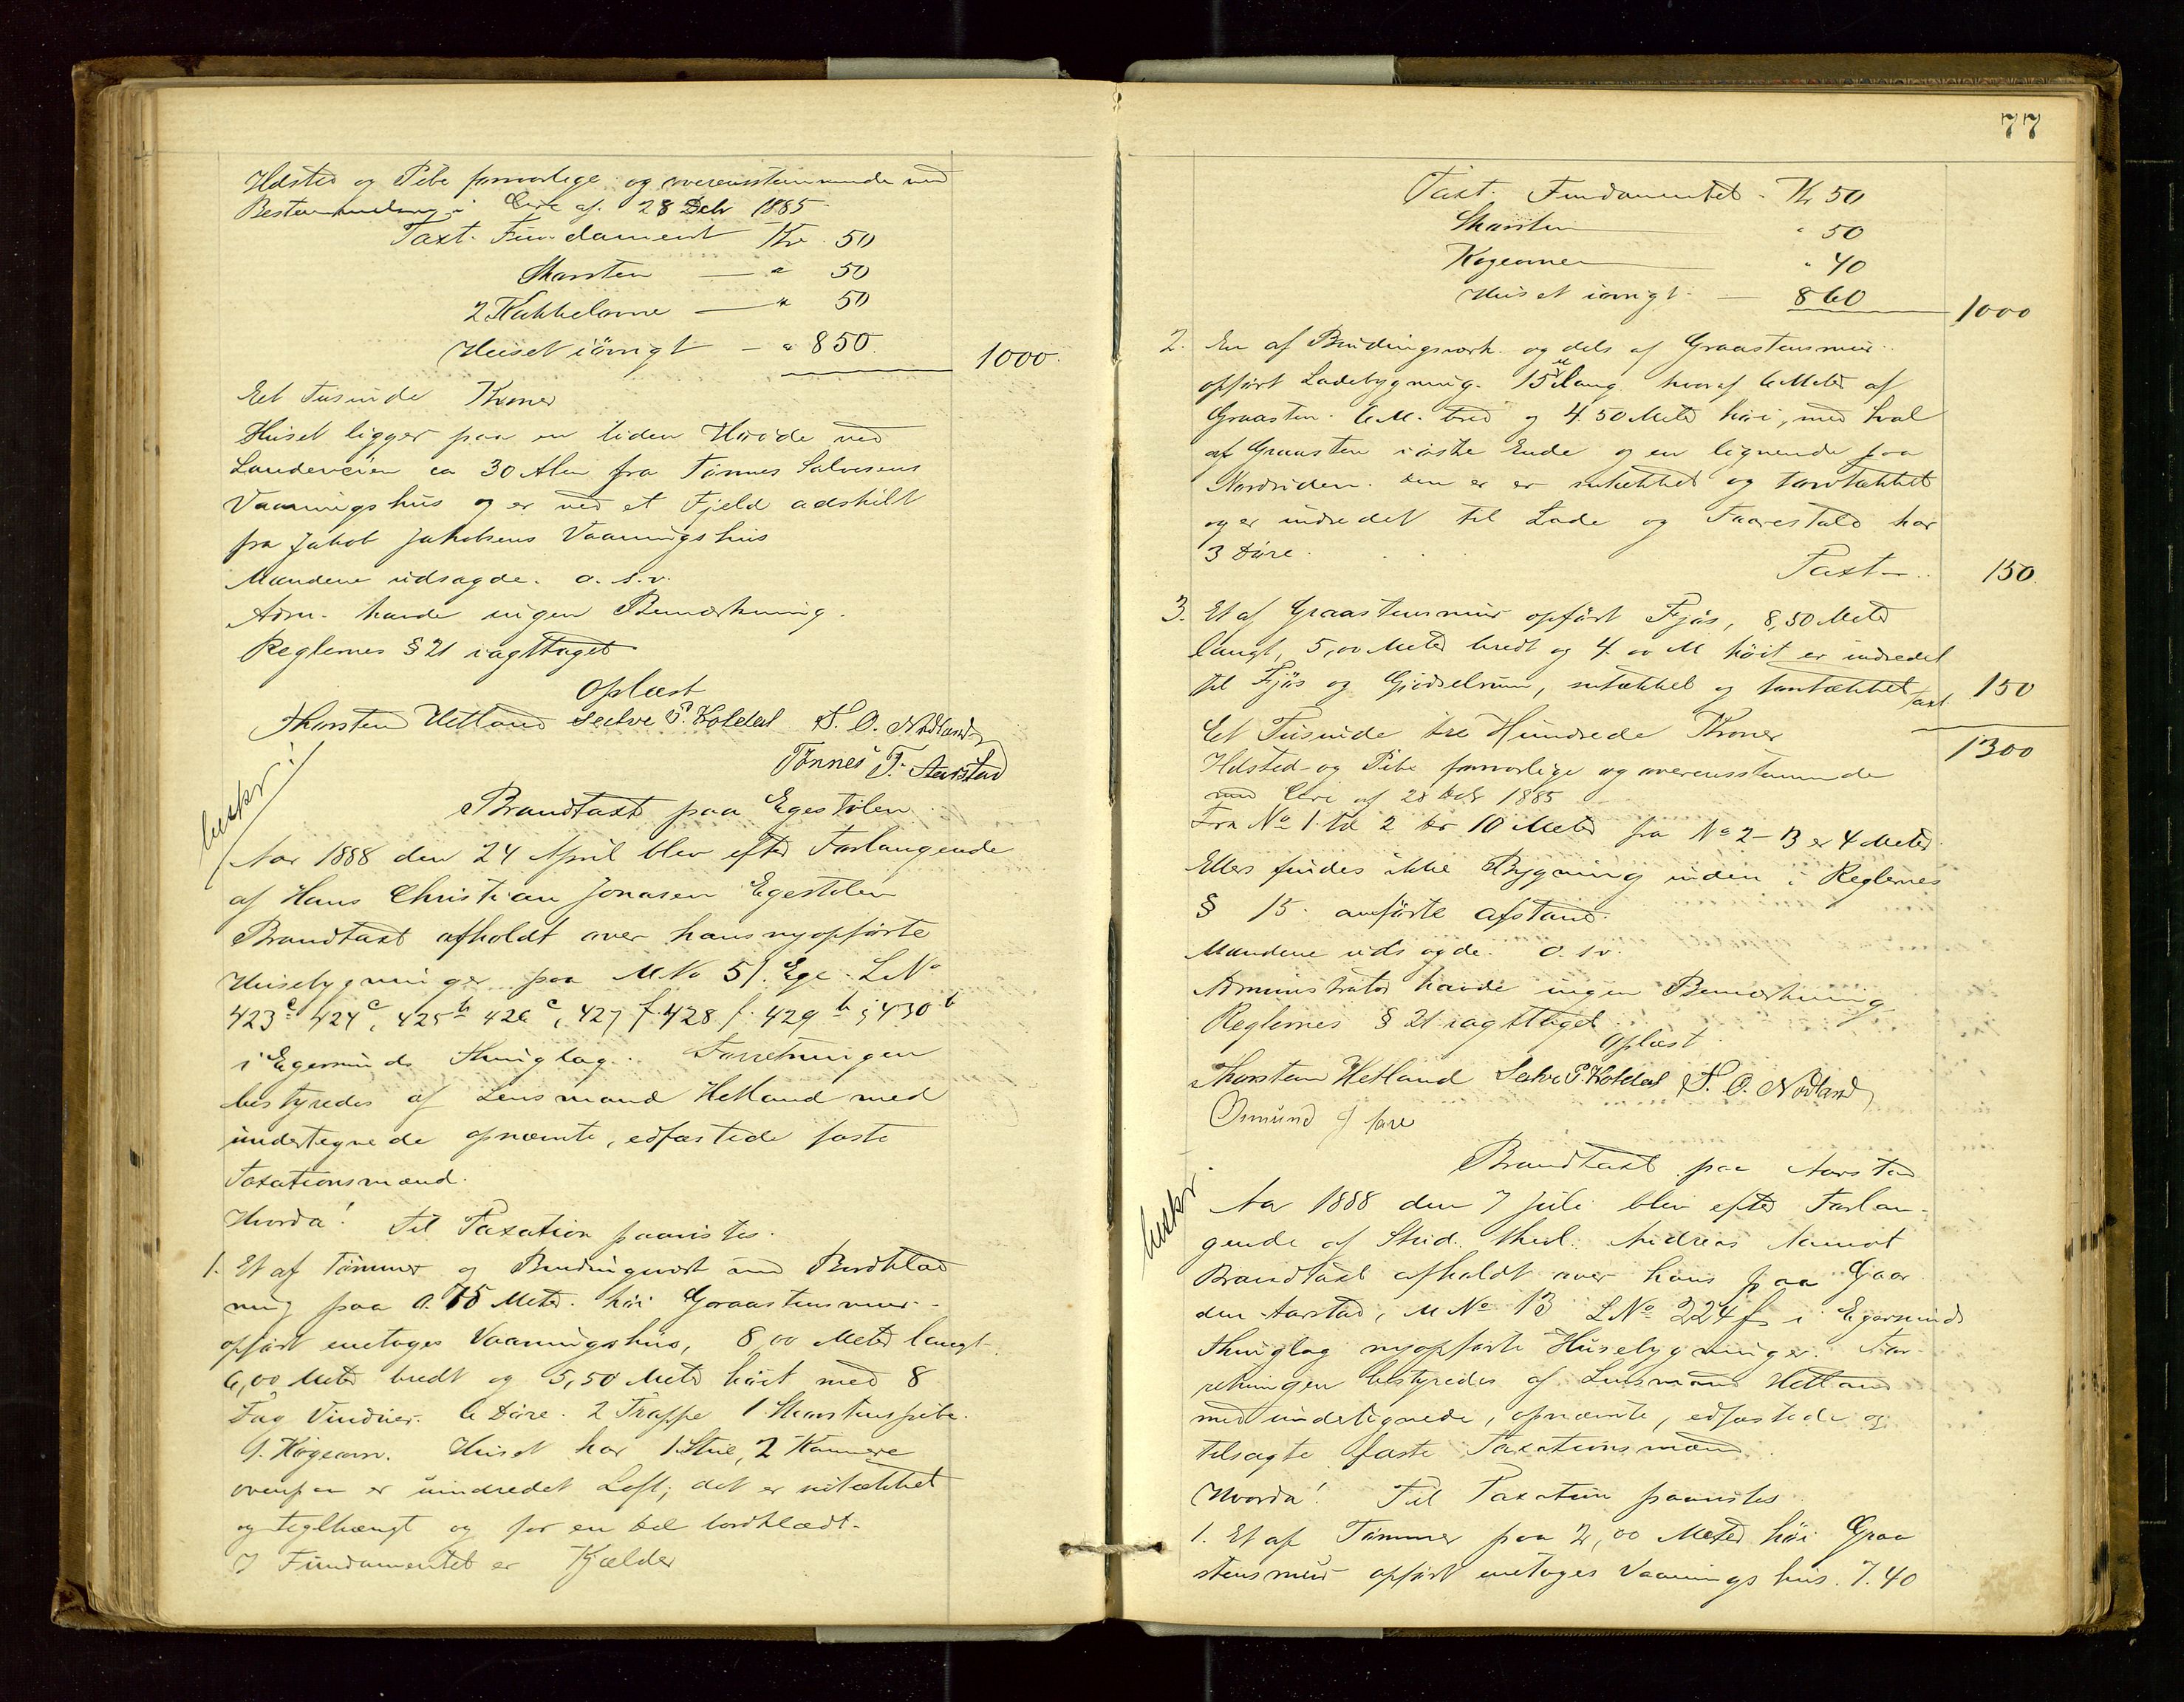 Ildsted og Pibe forsvarlige og overensstemmende med
Bestemmelsen i Circ af. 28 Debr 1885
Taxt. Fundament Kr. 50
Skorsten — " 50
2 Kakkelovne — " 50
Huset iövrigt — " 850. 1000.
Eet Tusinde Kroner
Huset ligger paa en liden Höide ved
Landeveien ca 30 Alen fra Tönnes Salvesens
Vaaningshus og er ved et Fjeld adskilt
fra Jakob Jakobsens Vaaningshus
Mændene udsagde. o. s. v.
Adm. havde ingen Bemærkning.
Reglernes § 21 iagttaget
Oplæst
Thorsten Hetland Salve P. Koldal S. O. Nodland
Tönnes T. Aarstad
beskr.
Brandtaxt paa Egestölen
Aar 1888 den 24 April blev efter Forlangende
af Hans Christian Jonasen Egestölen
Brandtaxt afholdt over hans nyopförte
Husebygninger paa M No 51. Ege. L No
423 c 424 c, 425 b 426 c, 427 f. 428 f. 429 b, 430 b
i Egersunds Thinglag. Forretningen
bestyredes af Lensmand Hetland med
undertegnede opnævnte, edfæstede faste
Taxationsmænd.
Hvorda! Til Taxation paavistes.
1. Et af Tömmer og Bindingsverk med Bordklæd
ning paa 0.75 Meter. höi Graastensmur
opfört enetages Vaaningshus, 8,00 Meter langt
6,00 Meter bredt og 5,50 Meter höit med 8
Fag Vinduer. 6 Döre. 2 Trappe 1 Skorstenspibe.
1. Kogeovn. Huset har 1 Stue, 2 Kamere
ovenpaa er uindredet Loft; det er nitækket
og teglhængt og for en Del bordklædt.
I Fundamentet er Kjælder
77
Taxt. Fundamentet. Kr 50
Skorsten " 50
Kogeovne " 40
Huset iövrigt — 860 1000
2. En af Bindingsverk og dels af Graastensmur
opfört Ladebygning. 15 M lang hvoraf 6 Meter af
Graasten. 6 M. bred og 4.50 Meter höi, med hval
af Graasten i östre Ende og en lignende paa
Nordsiden. Den er er nitækket og torvtækket
og er indredet til Lade og Faarestald har
3 Döre.
Taxt.. 150.
3. Et af Graastensmur opfört Fjös, 8,50 Meter
langt, 5,00 Meter bredt og 4.00 M höit er indredet
til Fjös og Gjödselrum, nitækket og torvtækket Taxt. 150
Eet Tusinde tre Hundrede Kroner 1300
Ildsted og Pibe forsvarlige og overensstemmende
med Circ af 28 Debr 1885
Fra No 1 til 2 er 10 Meter fra No 2–3 er 4 Meter.
Ellers findes ikke Bygning inden i Reglernes
§ 15. anförte Afstand.
Mændene udsagde. o. s v.
Administrator havde ingen Bemærkning
Reglernes § 21 iagttaget
Oplæst
Thorsten Hetland Salve P. Koldal S. O. Nodland
Osmund
beskr.
Brandtaxt paa Aarstad
Aar 1888 den 7 Juli blev efter Forlan-
gende af Stud. theol. Andreas Aamot
Brandtaxt afholdt over hans paa Gaar
den Aarstad, M No 13 L No 224 f i Egersunds
Thinglag nyopförte Husebygninger. For-
retningen bestyredes af Lensmand Hetland
med undertegnede, opnævnte, edfæstede og
tilsagte faste Taxationsmænd.
Hvorda! Til Taxation paavistes
1. Et af Tömmer paa 2,00 Meter höi Graa
stensmur opfört enetages Vaaningshus. 7.40